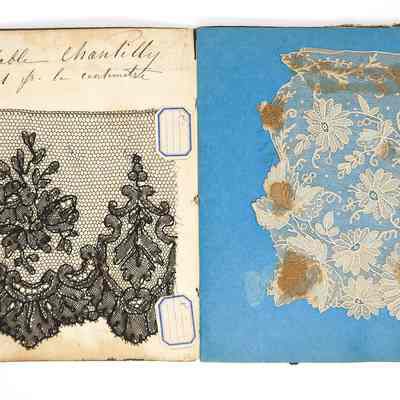 able Chantilly
1 fr. le centimètre